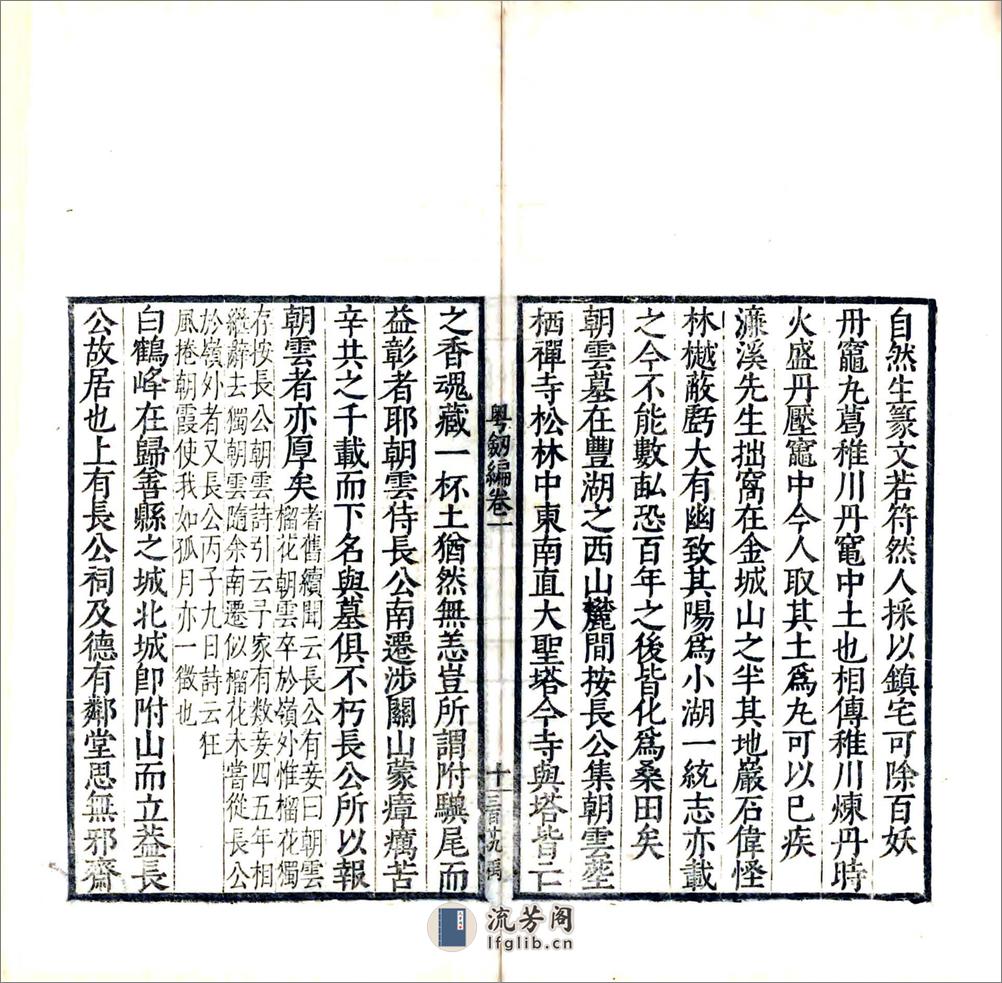 自然生篆文若符然人採以鎮宅可除百妖
丹竈丸葛稚川丹竈中土也相傳稚川煉丹時
火盛丹壓竈中今人取其土爲丸可以已疾
濂溪先生拙窩在金城山之半其地巖石偉怪
林樾蔽虧大有幽致其陽爲小湖一統志亦載
之今不能數畝恐百年之後皆化爲桑田矣
朝雲墓在豐湖之西山麓間按長公集朝雲塟
栖禪寺松林中東南直大聖塔今寺與塔皆亡
粵劒編卷二
十一
之香魂藏一杯土猶然無恙豈所謂附驥尾而
益彰者耶朝雲侍長公南遷涉關山蒙瘴癘苦
辛共之千載而下名與墓俱不朽長公所以報
朝雲者亦厚矣
耆舊續聞云長公有妾曰朝雲
榴花朝雲卒於嶺外惟榴花獨
存按長公朝雲詩引云予家有數妾四五年相
繼辭去獨朝雲隨余南遷似榴花未嘗從長公
於嶺外者又長公丙子九日詩云狂
風捲朝霞使我如孤月亦一徵也
白鶴峰在歸善縣之城北城卽附山而立葢長
公故居也上有長公祠及德有鄰堂思無邪齋
流芳阁
lfglib.cn